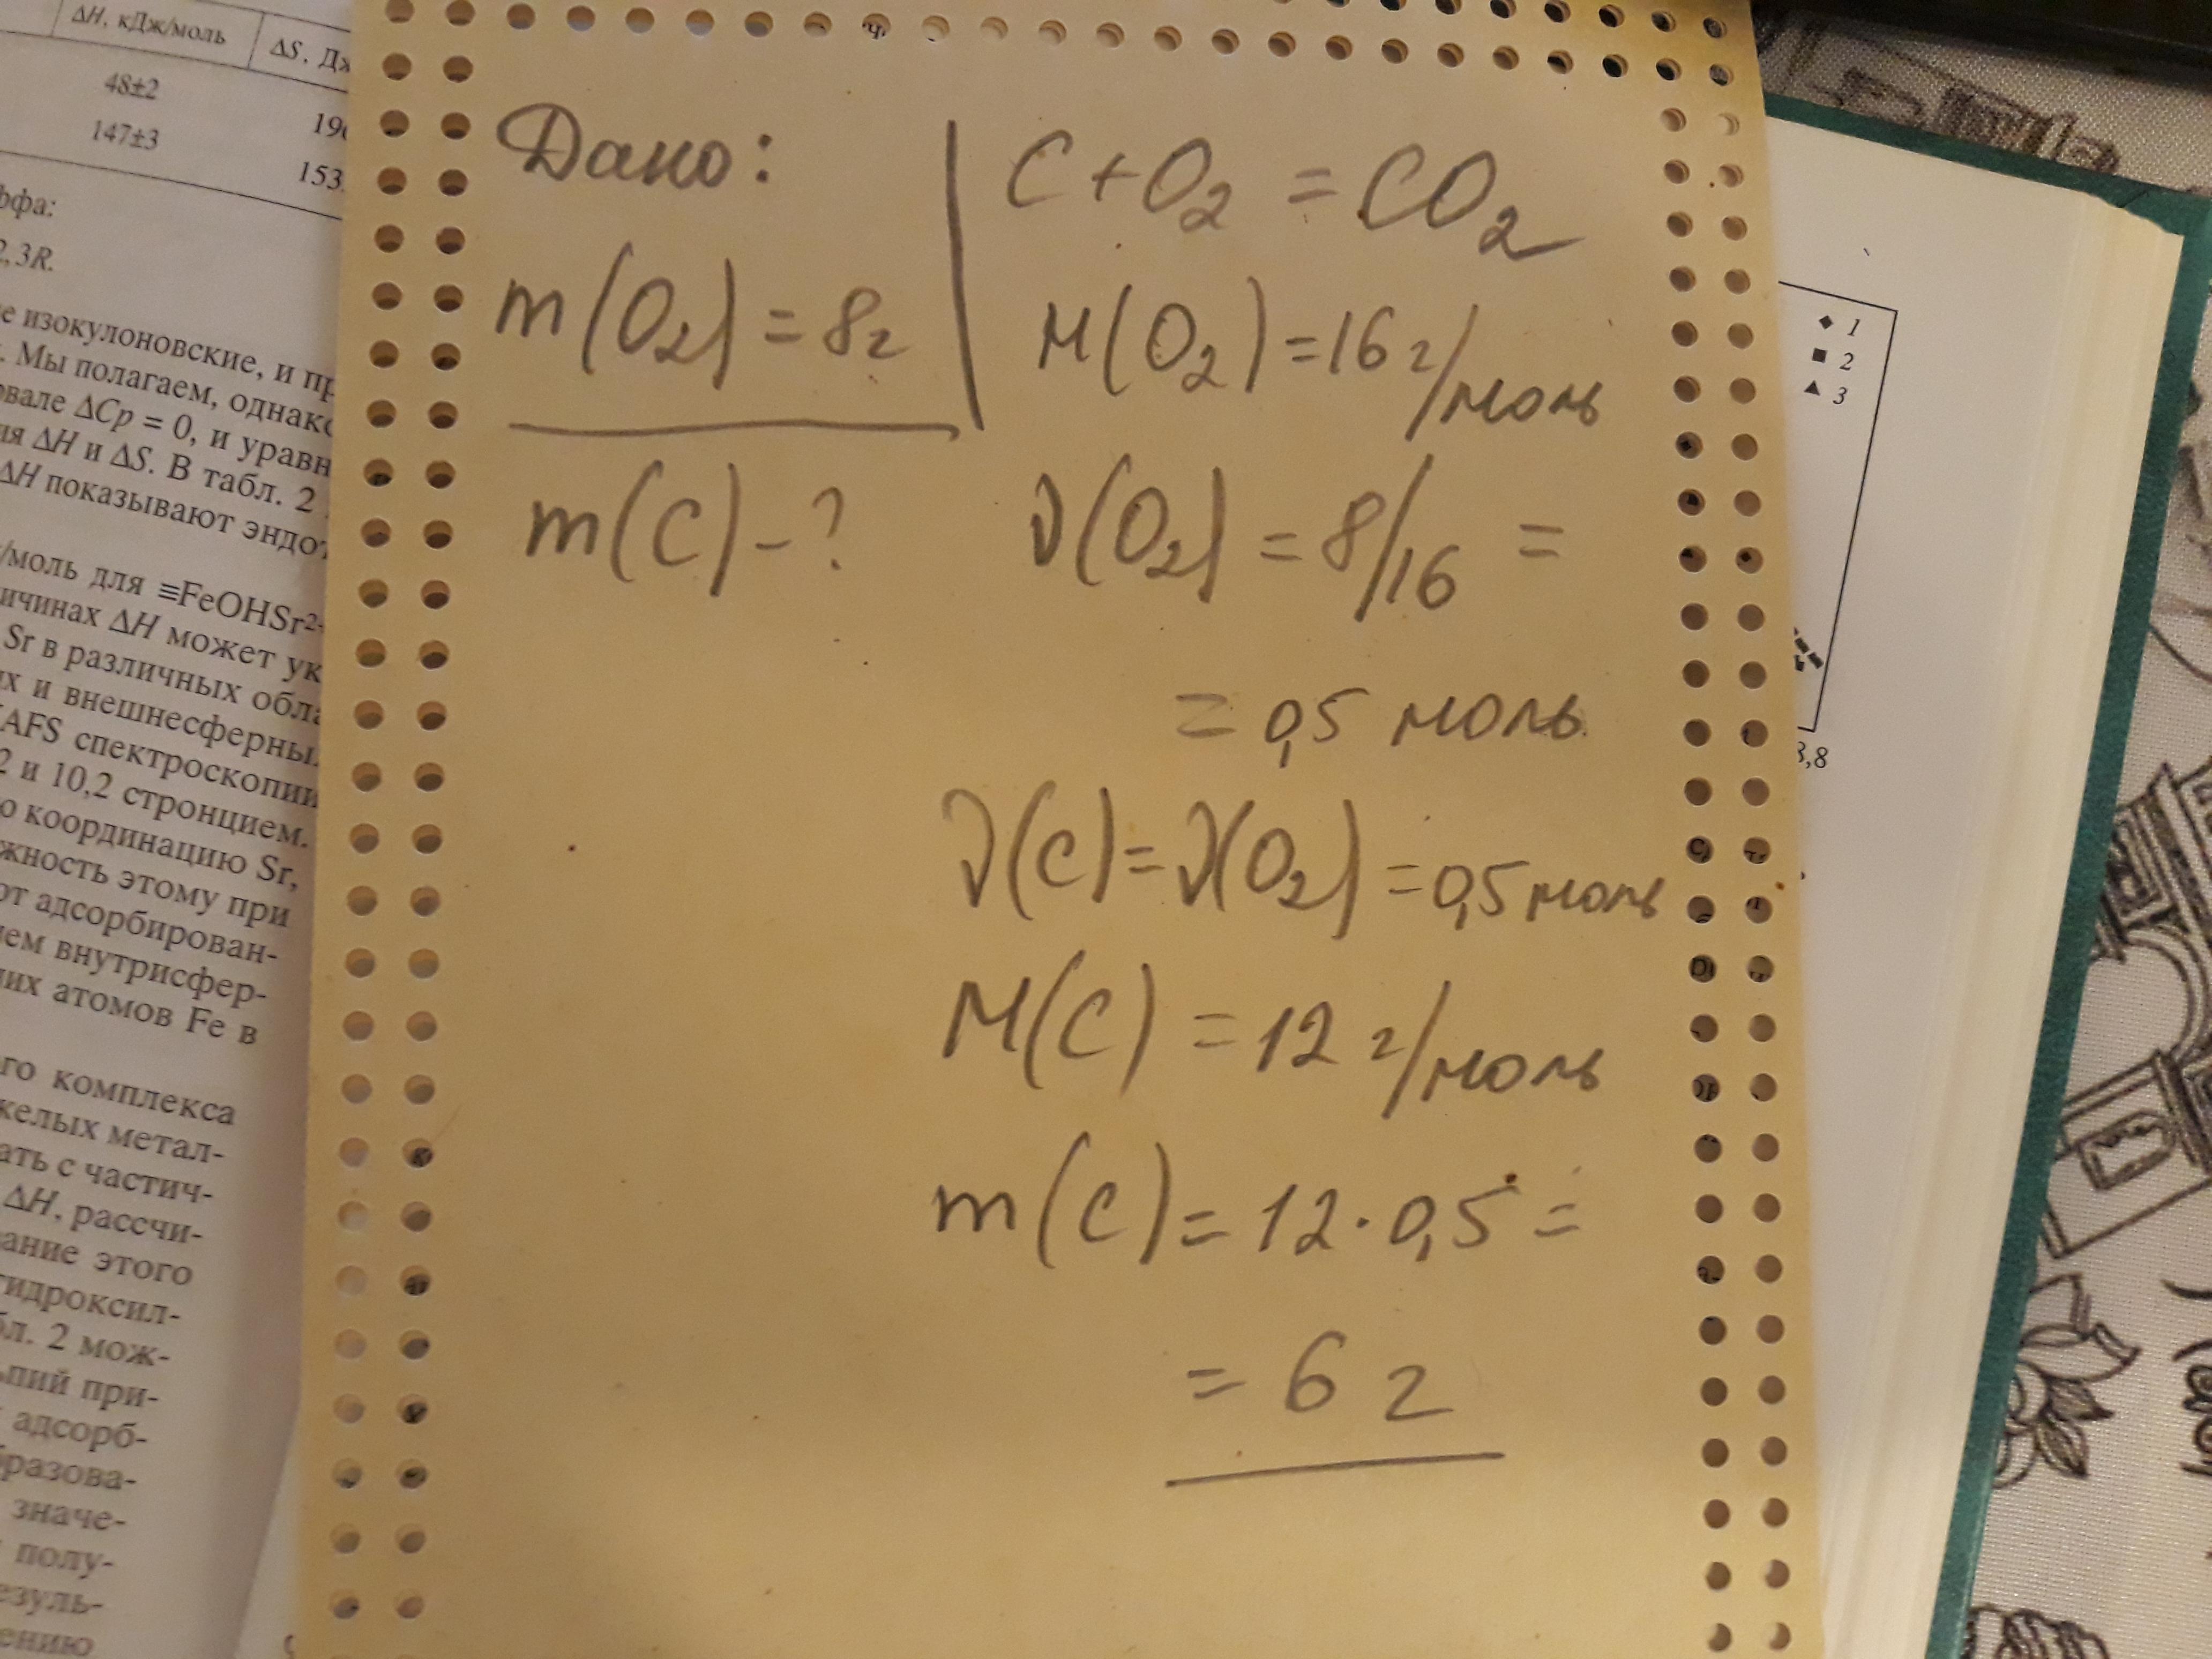 ΔH, кДж/моль
48±2
147±3
153
2,3R.
е изокулоновские, и пр
. Мы полагаем, однако
ΔCp = 0, и уравн
ΔH и ΔS. В табл. 2
ΔH показывают эндот
/моль для ≡FeOHSr²⁺
ичинах ΔH может ук
Sr в различных обла
их и внешнесферны
AFS спектроскопии
2 и 10,2 стронцием.
ю координацию Sr,
жность этому при
от адсорбирован-
ием внутрисфер-
их атомов Fe в
го комплекса
желых метал-
ать с частич-
ΔH, рассчи-
ание этого
гидроксил-
бл. 2 мож-
ьпий при-
адсорб-
бразова-
значе-
полу-
езуль-
ению
Дано:
m(O₂) = 8г
m(C) - ?
C + O₂ = CO₂
M(O₂) = 16 г/моль
ν(O₂) = 8/16 =
= 0,5 моль
ν(C) = ν(O₂) = 0,5 моль
M(C) = 12 г/моль
m(C) = 12 · 0,5 =
= 6 г
1
2
3
3,8